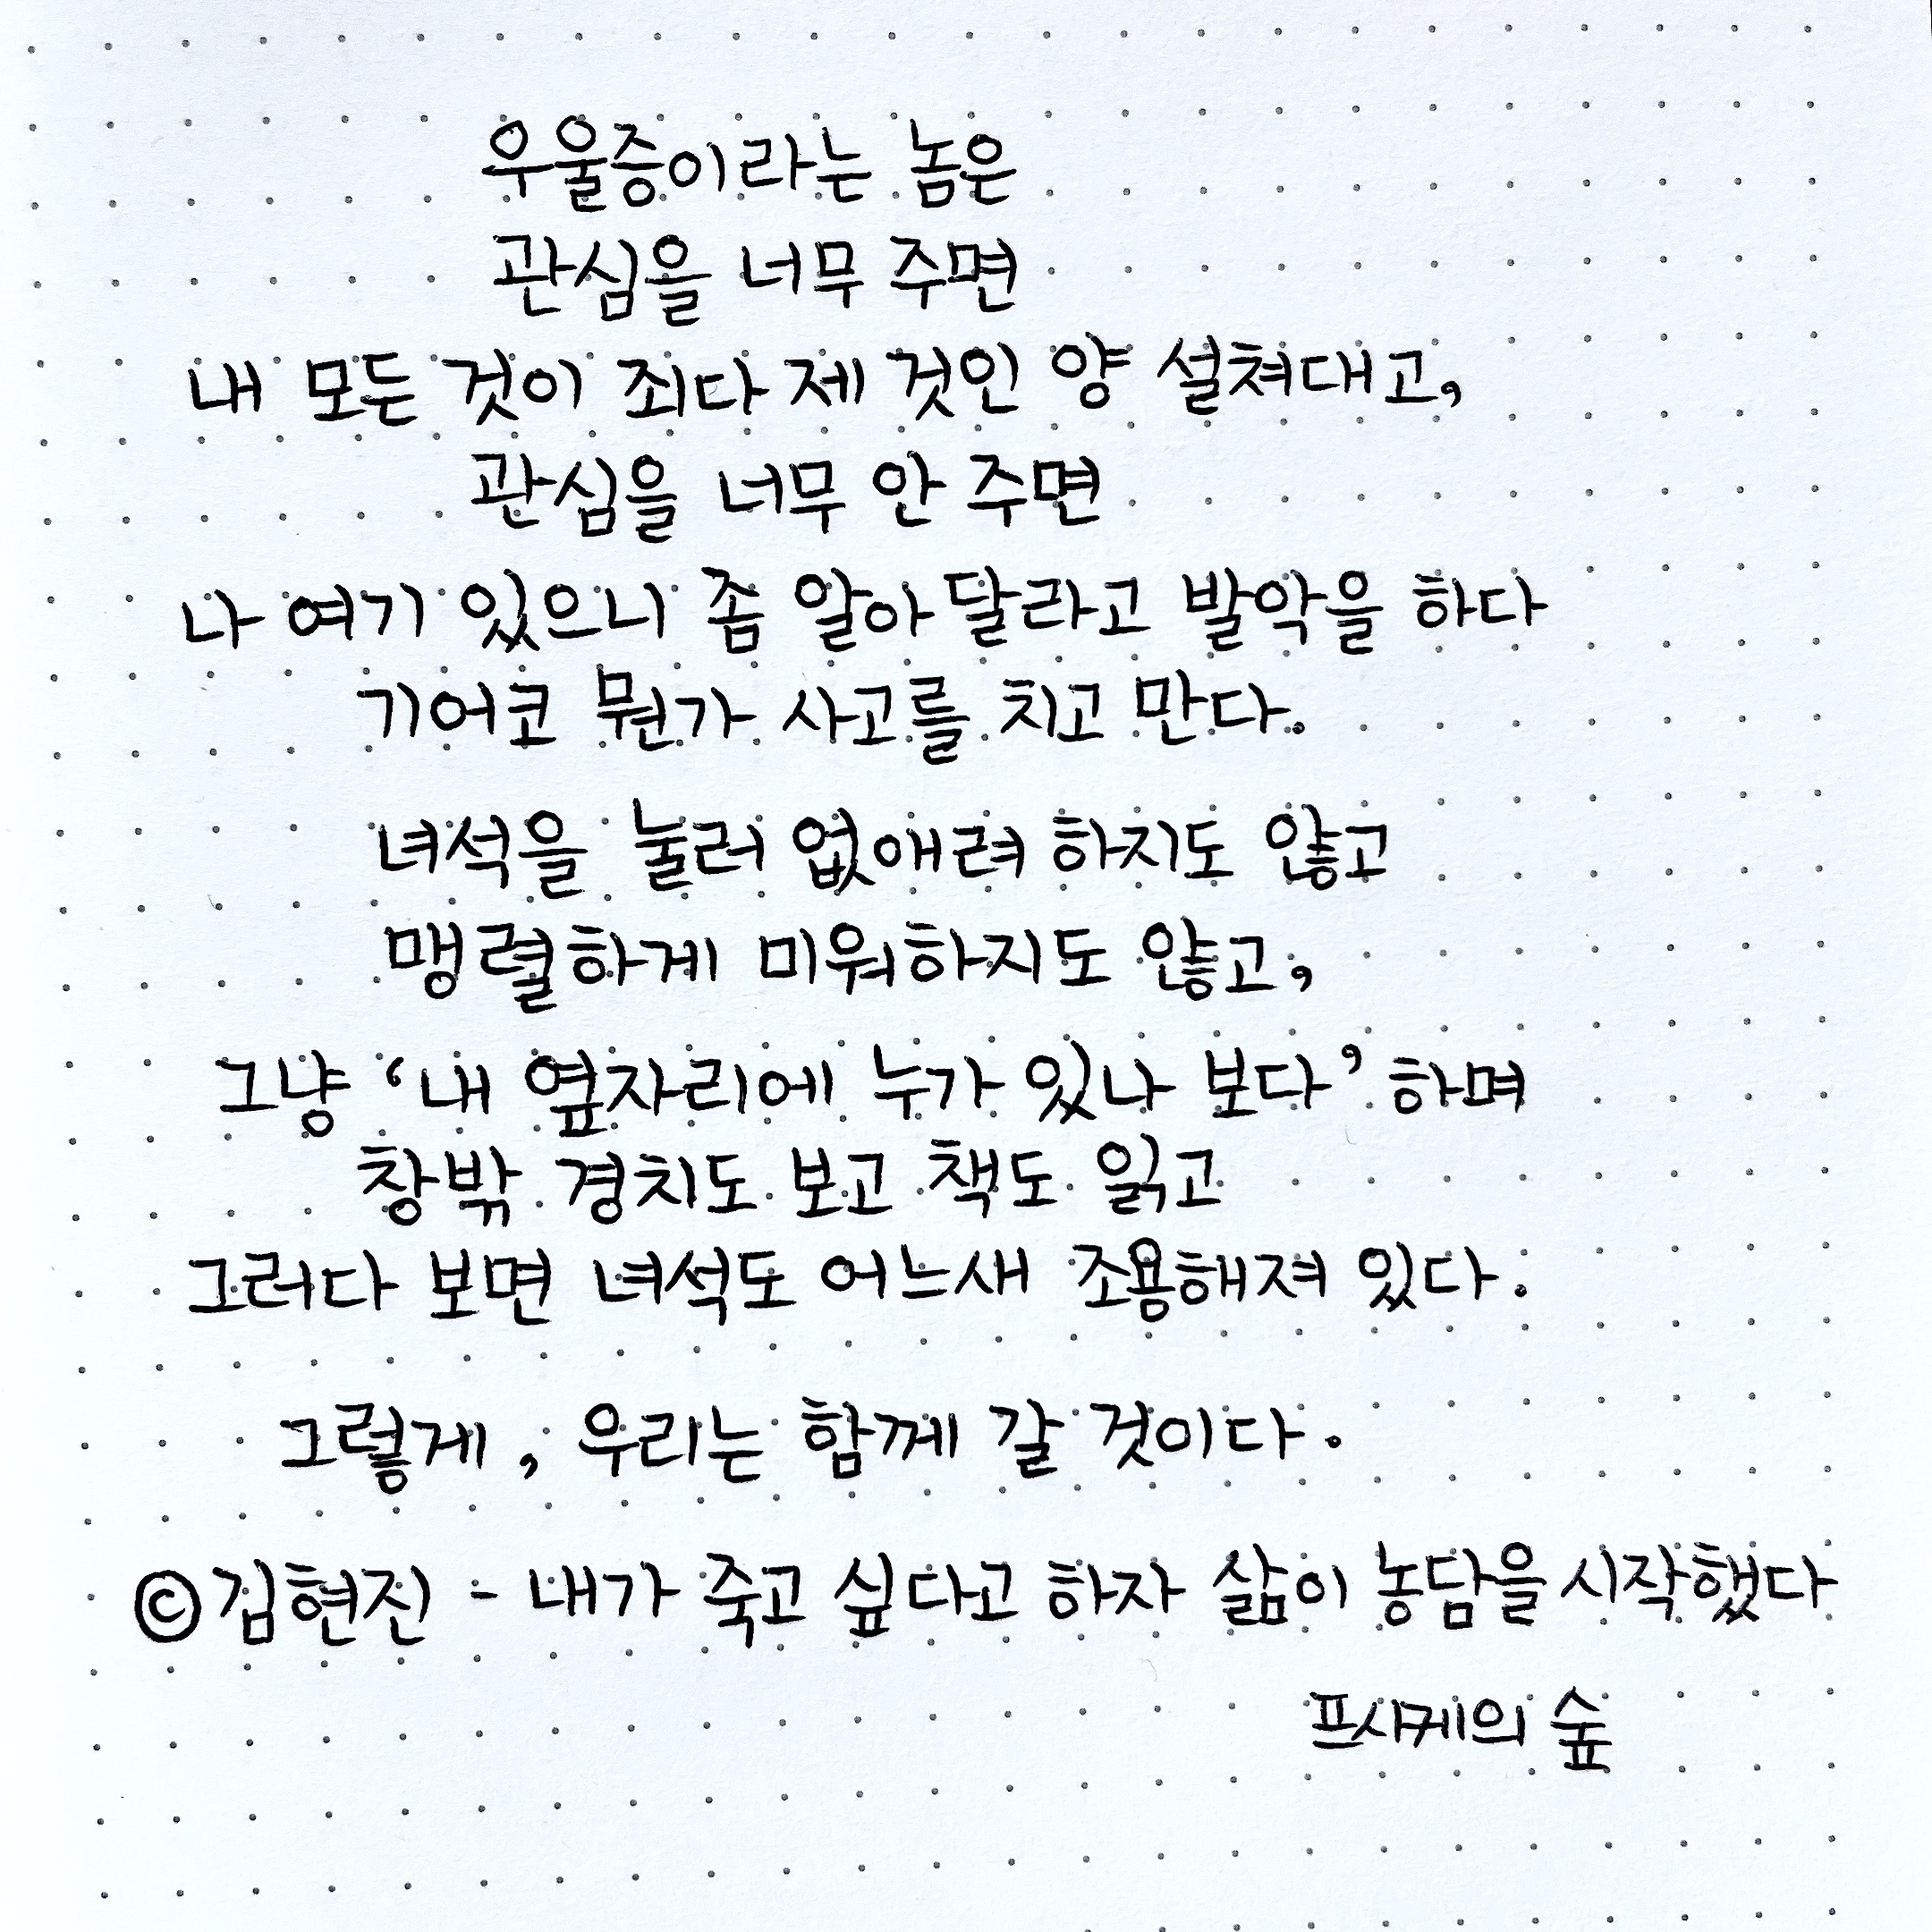 우울증이라는 놈은
관심을 너무 주면
내 모든 것이 죄다 제 것인 양 설쳐대고,
관심을 너무 안 주면
나 여기 있으니 좀 알아달라고 발악을 하다
기어코 뭔가 사고를 치고 만다.
녀석을 눌러 없애려 하지도 않고
맹렬하게 미워하지도 않고,
그냥 ‘내 옆자리에 누가 있나 보다’ 하며
창밖 경치도 보고 책도 읽고
그러다 보면 녀석도 어느새 조용해져 있다.
그렇게, 우리는 함께 갈 것이다.
©김현진 - 내가 죽고 싶다고 하자 삶이 농담을 시작했다
프시케의 숲